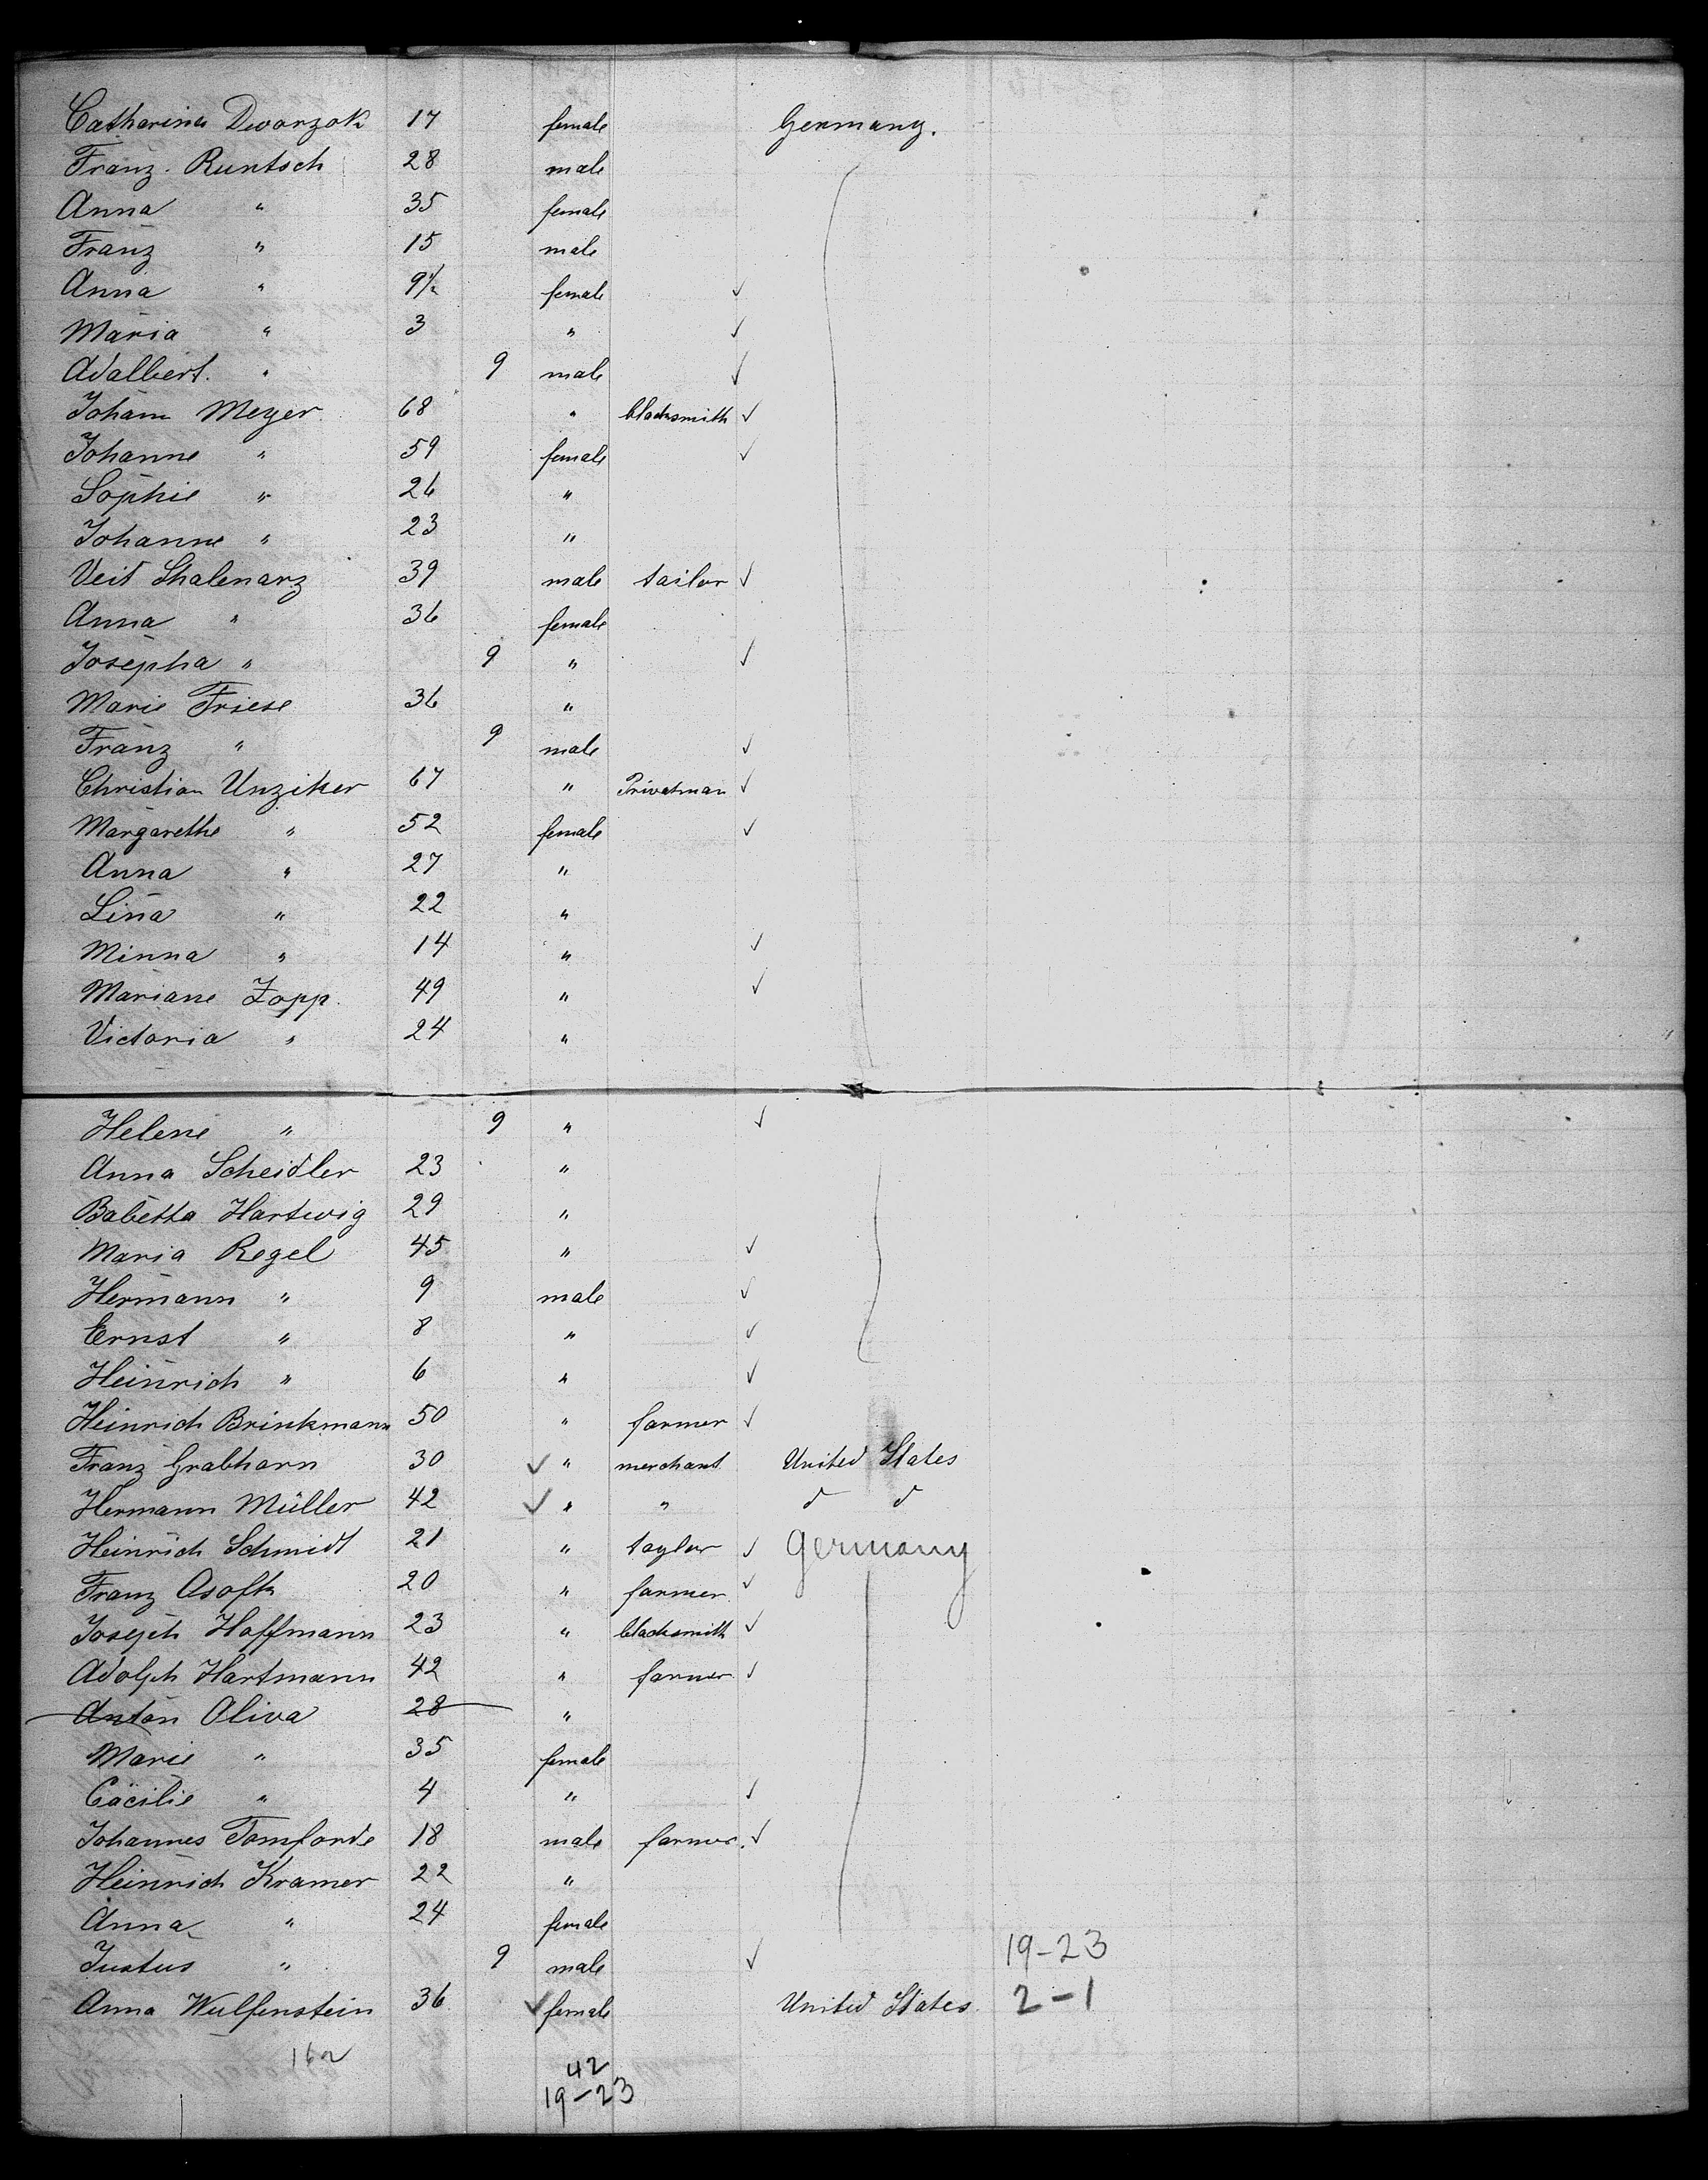 Catharina Dworzak 17 female Germany.
Franz Runtsch 28 male
Anna " 35 female
Franz " 15 male
Anna " 9½ female ✓
Maria " 3 " ✓
Adalbert. " 9 male ✓
Johann Meyer 68 " blacksmith ✓
Johanne " 59 female ✓
Sophie " 26 "
Johanne " 23 "
Veit Skalenarz 39 male tailor ✓
Anna " 36 female
Josepha " 9 " ✓
Marie Friese 36 "
Franz " 9 male ✓
Christian Unziker 67 " Privatman ✓
Margarethe " 52 female ✓
Anna " 27 "
Lina " 22 "
Minna " 14 " ✓
Mariane Zopp. 49 " ✓
Victoria " 24 "
Helene " 9 " ✓
Anna Scheidler 23 "
Babetta Hartwig 29 "
Maria Regel 45 " ✓
Hermann " 9 male ✓
Ernst " 8 " ✓
Heinrich " 6 " ✓
Heinrich Brinkmann 50 " farmer ✓
Franz Grabharn 30 ✓ " merchant United States
Hermann Müller 42 ✓ " " d d
Heinrich Schmidt 21 " taylor ✓ Germany
Franz Asofk 20 " farmer ✓
Joseph Hoffmann 23 " blacksmith ✓
Adolph Hartmann 42 " farmer ✓
Anton Oliva 28 "
Marie " 35 female
Cäcilie " 4 " ✓
Johannes Tomforde 18 male farmer. ✓
Heinrich Kramer 22 "
Anna " 24 female
Justus " 9 male ✓ 19-23
Anna Wulfenstein 36 ✓ female United States 2-1
42
19-23